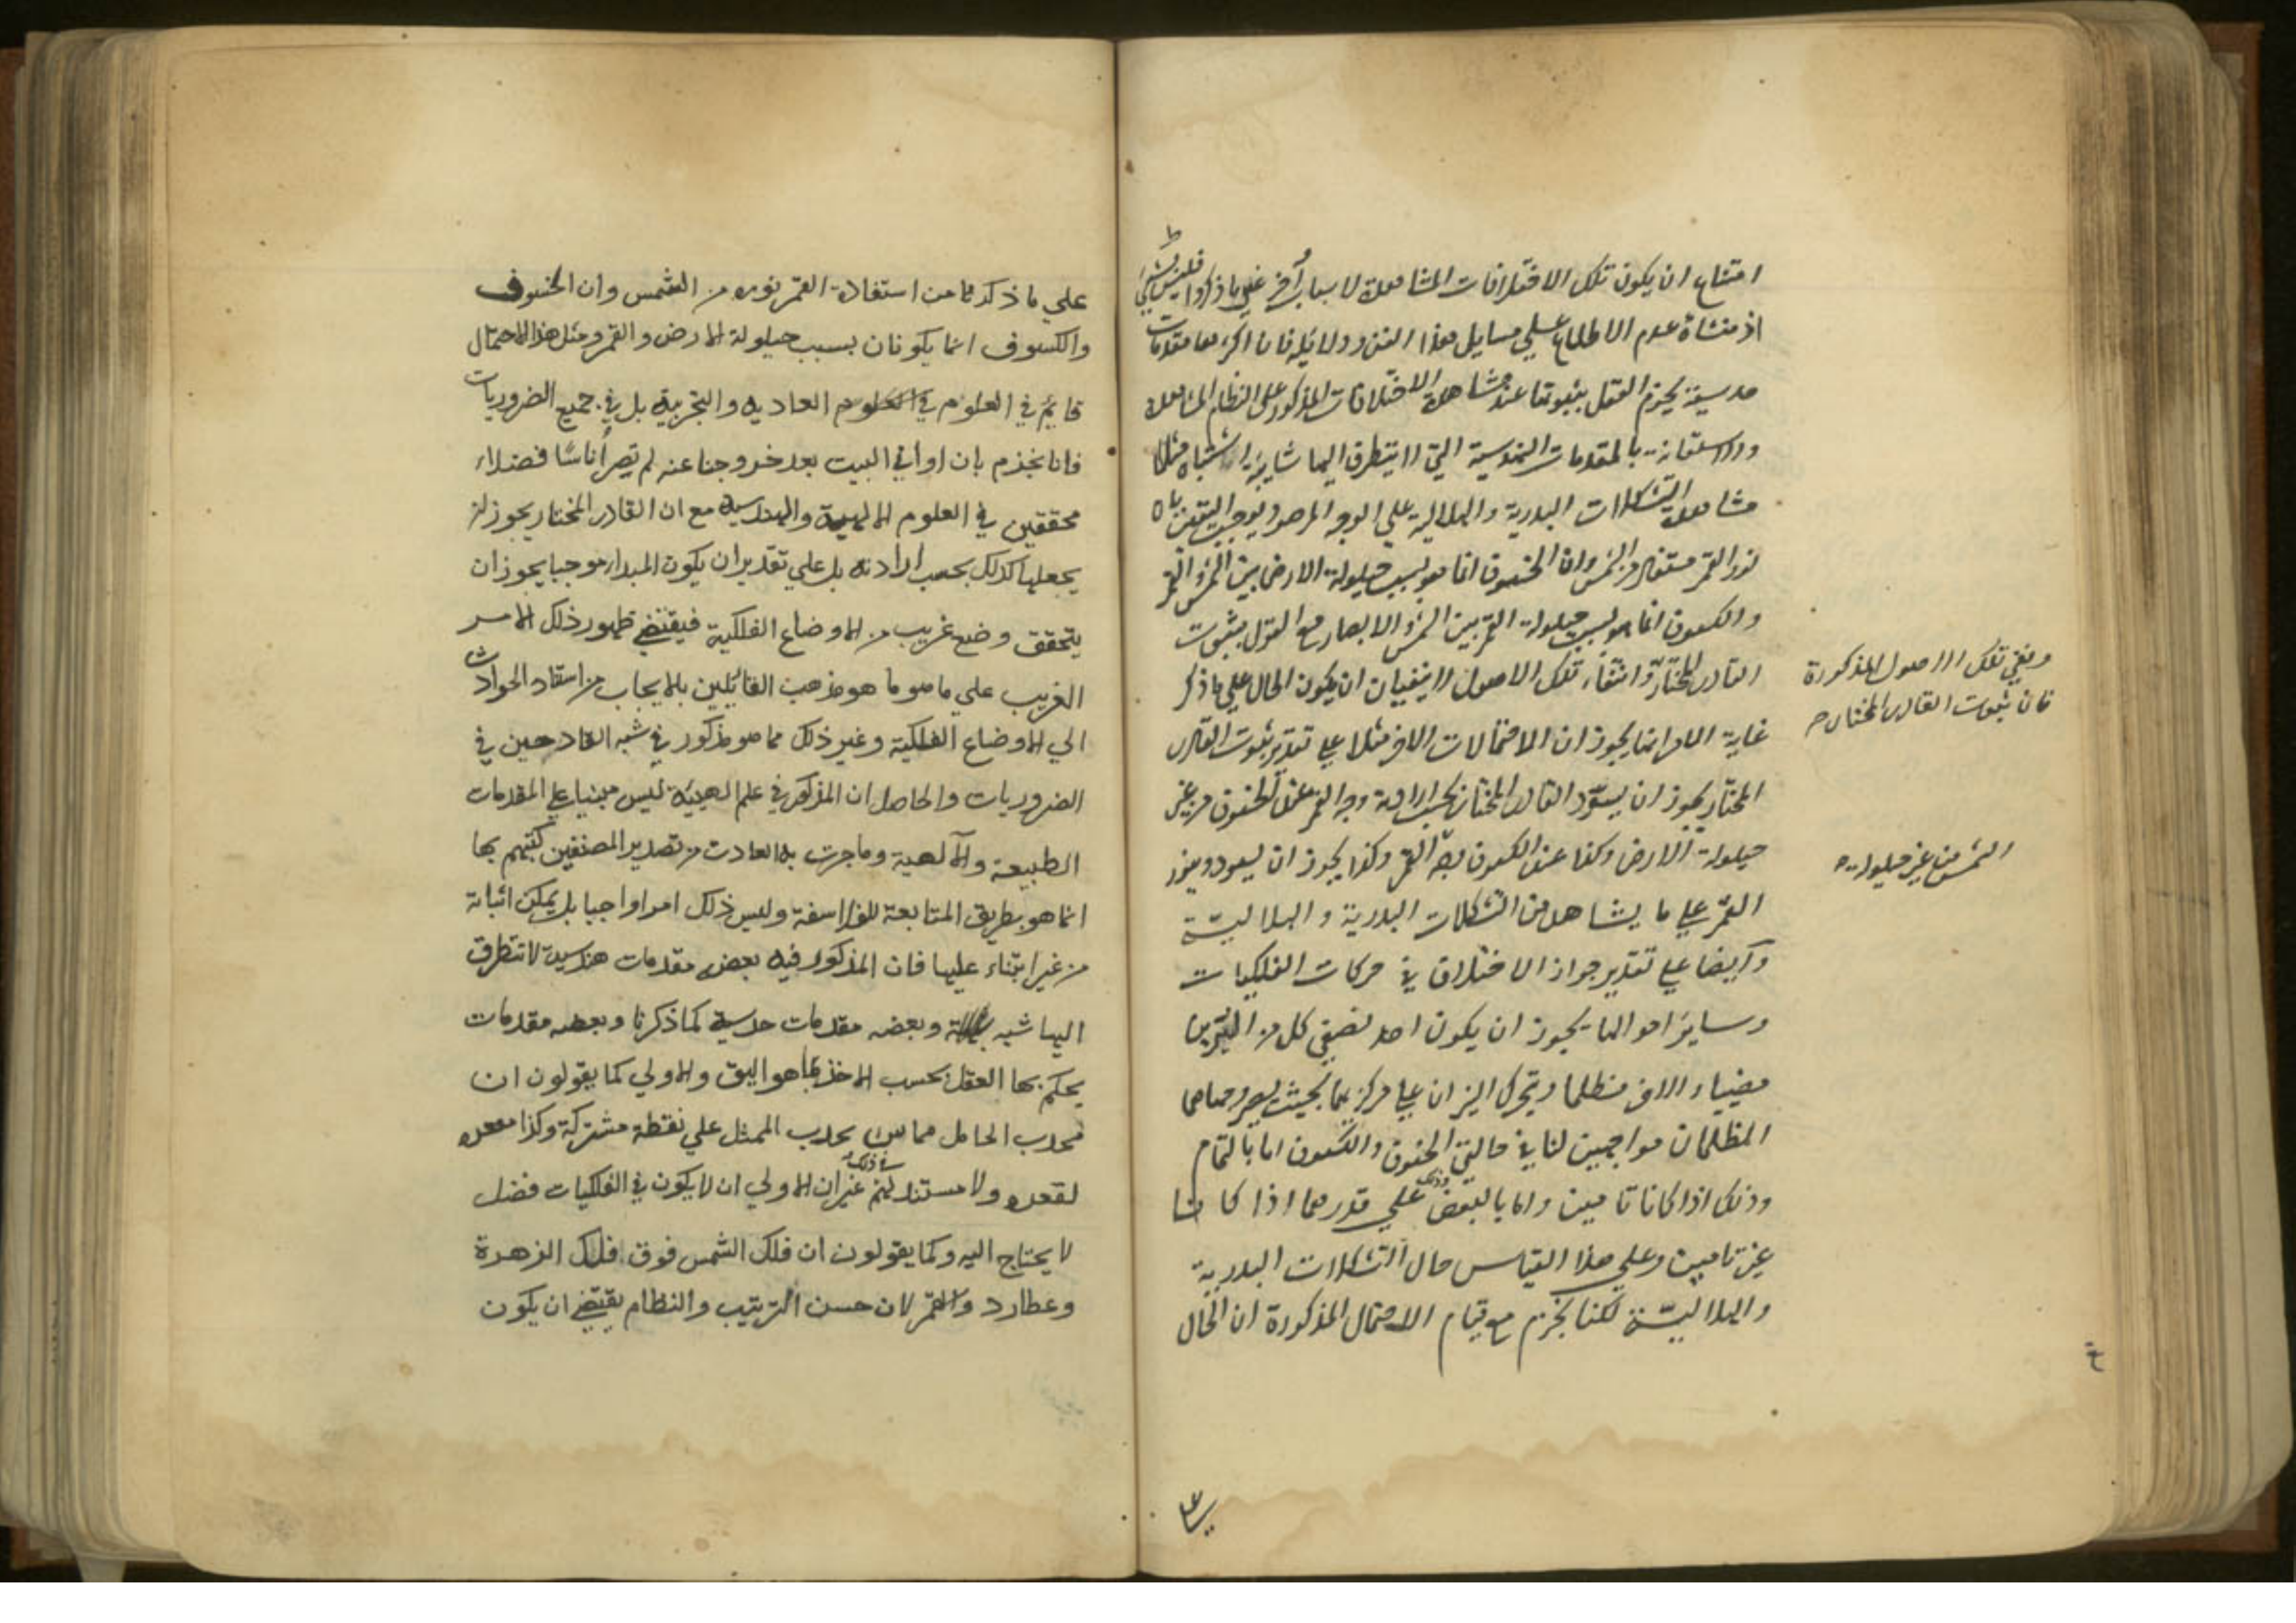 امتناع ان يكون تلك الاختلافات المشاهدة لاسباب أخر غير ما ذكروا فليس بشيئ
اذ منشاة عدم الاطلاع علي مسايل هذا الفن ودلايله فان اكثرها مقدمات
حدسية يجزم العقل بثبوتها عند مشاهدة الاختلافات المذكور علي النظام المشاهدة
والاستعانة بالمقدمات الهندسية التي لا يتطرق اليها شايبة اشتباه مثلا
مشاهدة التشكلات البدرية والهلالية علي الوجه المرصود يوجب اليقين بان
نور القمر مستفاد من الشمس وان الخسوف انما هو بسبب حيلولة الارض بين الشمس والقمر
والكسوف انما هو بسبب حيلولة القمر بين الشمس والابصار مع القول بثبوت
القادر المختار وانتفاء تلك الاصول لا ينفيان ان يكون الحال علي ما ذكر
غاية الامر انهما يجوزان الاحتمالات الاخر مثلا علي تقدير ثبوت القادر
المختار يجوز ان يسوّد القادر المختار بحسب ارادته وجه القمر عند الخسوف من غير
حيلولة الارض وكذا عند الكسوف وجه القمر وكذا يجوز ان يسود وينور
القمر علي ما يشاهد من التشكلات البدرية والهلاليّة
وأيضا علي تقدير جواز الاختلاف في حركات الفلكيات
وساير احوالها يجوز ان يكون احد نصفي كل من النيّرين
مضيا والاخر مظلما ويتحرك النيران علي مركزيهما بحيث يصير وجهاهما
المظلمان مواجهين لنا في حالتي الخسوف والكسوف اما بالتمام
وذلك اذا كانا تامين واما بالبعض وذلك علي قدرهما اذا كانا
غير تامين وعلي هذا القياس حال التشكلات البدرية
والهلاليّة لكنا نجزم مع قيام الاحتمال المذكورة ان الحال
ونفي تلك الاصول المذكورة
فان ثبوت القادر المختار
الشمس من غير حيلولة
علي ما ذكرنا من استفادة القمر نوره من الشمس وان الخسوف
والكسوف انما يكونان بسبب حيلولة الارض والقمر ومثل هذا الاحتمال
قايم في العلوم في العلوم العاديه والتجربية بل في جميع الضروريات
فانا نجذم بان اواني البيت بعد خروجنا عنه لم تصر أناسًا فضلاء
محققين في العلوم الالهية والهندسية مع ان القادر المختار يجوز له ان
يجعلها كذلك بحسب ارادته بل علي تقدير ان يكون المبدا موجبا يجوز ان
يتحقق وضع غريب من الاوضاع الفلكية فيقتضي ظهور ذلك الامر
الغريب علي ما هو ما هو مذهب القائلين بالايجاب من اسناد الحوادث
الي الاوضاع الفلكية وغير ذلك مما هو مذكور في شبه القادحين في
الضروريات والحاصل ان المذكور في علم الهيئة ليس مبنيا علي المقدمات
الطبيعة والآلهية وما جرت به العادت من تصدير المصنفين كتبهم بها
انما هو بطريق المتابعة للفلاسفة وليس ذلك امرا واجبا بل يمكن اثباته
من غير ابتناء عليها فان المذكور فيه بعضه مقدمات هندسية لا تتطرق
اليها شبهة وبعضه مقدمات حدسية كما ذكرنا وبعضه مقدمات
يحكم بها العقل بحسب الاخذ بما هو اليق والاولي كما يقولون ان
محدب الحامل مماس بحدب الممثل علي نقطة مشتركة وكذا مقعره
لمقعره ولا مستند لهم في ذلك غير ان الاولي ان لا يكون في الفلكيات فضل
لا يحتاج اليه وكما يقولون ان فلك الشمس فوق فلك الزهرة
وعطارد والقمر لان حسن الترتيب والنظام يقتضي ان يكون